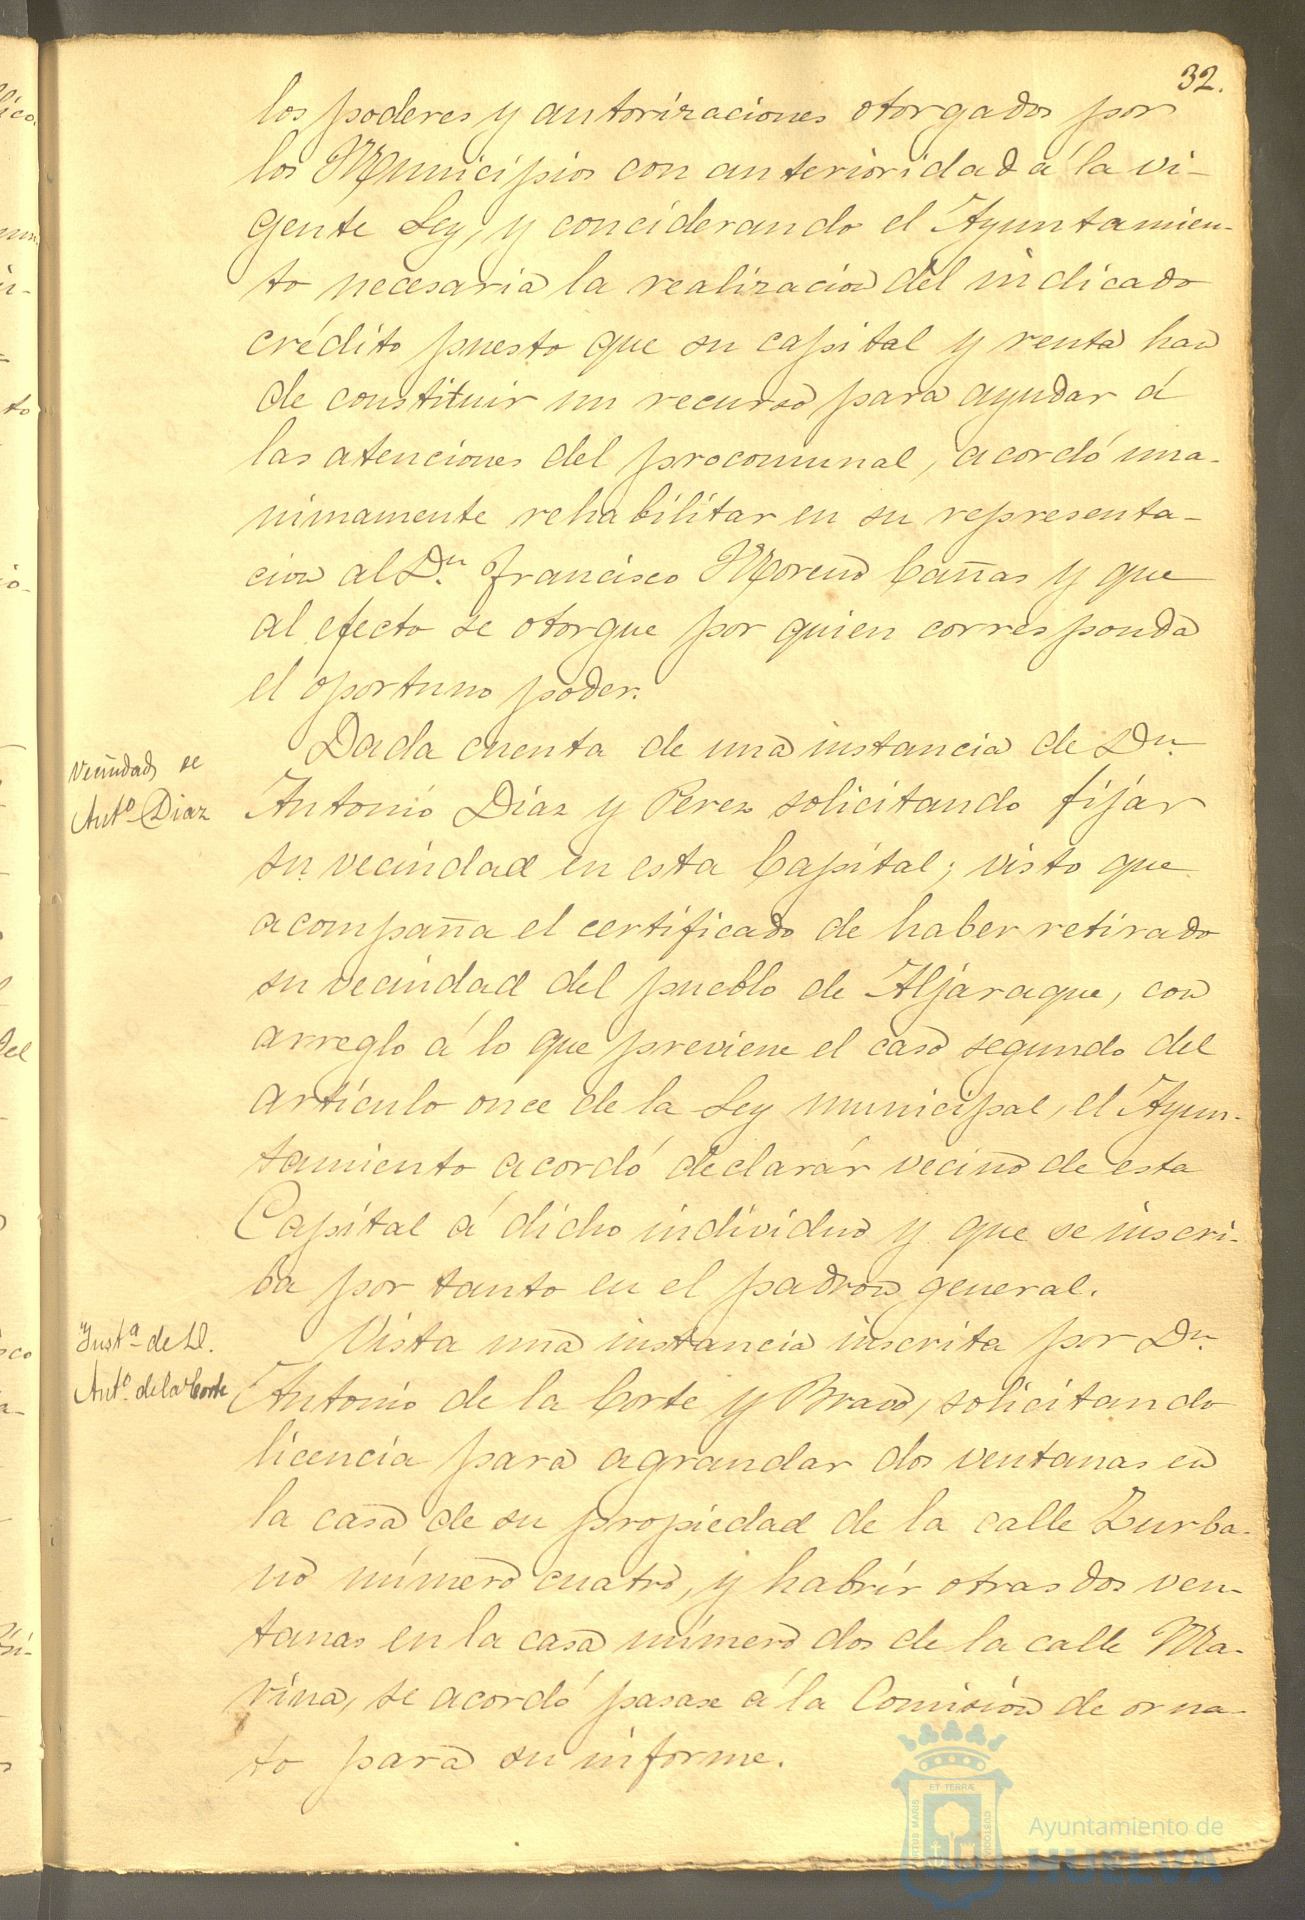 32.
los poderes y autorizaciones otorgados por
los Municipios con anterioridad á la vi-
gente Ley, y conciderando el Ayuntamien-
to necesaria la realizacion del indicado
crédito puesto que su capital y renta han
de constituir un recurso para ayudar á
las atenciones del procomunal, acordó una-
nimamente rehabilitar en su representa-
cion al Dn. Francisco Moreno Cañas y que
al efecto se otorgue por quien corresponda
el oportuno poder.
Vecindad, se
Antº Diaz
Dada cuenta de una instancia de Dn.
Antonio Díaz y Perez solicitando fijar
su vecindad en esta Capital; visto que
acompaña el certificado de haber retirado
su vecindad del pueblo de Aljaraque, con
arreglo á lo que previene el caso segundo del
artículo once de la Ley municipal, el Ayun-
tamiento acordó declarár vecino de esta
Capital á dicho individuo y que se inscri-
ba por tanto en el padron general.
Instª de D.
Antº de la Corte
Vista una instancia inscrita por Dn.
Antonio de la Corte y Bravo, solicitando
licencia para agrandar dos ventanas en
la casa de su propiedad de la calle Zurba-
no número cuatro, y habrír otras dos ven-
tanas en la casa número dos de la calle Ma-
rina, se acordó pasase á la Comisión de orna-
to para su informe.
ET TERRÆ
PORTUS MARIS
CUSTODIA
Ayuntamiento de
HUELVA